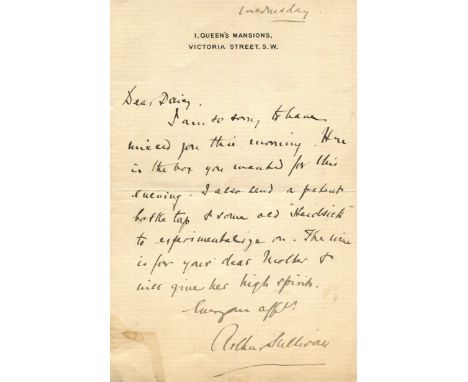 Wednesday
1, QUEEN'S MANSIONS,
VICTORIA STREET. S.W.
Dear Daisy.
I am so sorry to have
missed you this morning. Here
is the box you wanted for this
evening. I also send a patent
bottle tap & some old "Heidsick"
to experimentalize on. The wine
is for your dear Mother &
will give her high spirits.
Ever yours affly
Arthur Sullivan